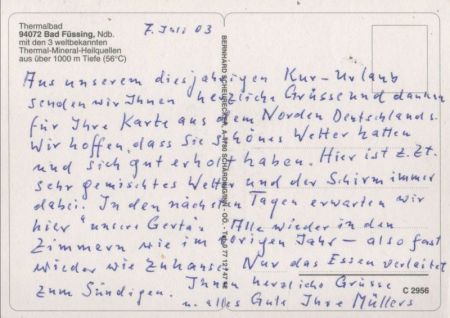 Thermalbad
94072 Bad Füssing, Ndb.
mit den 3 weltbekannten
Thermal-Mineral-Heilquellen
aus über 1000 m Tiefe (56°C)
7. Juli 03
Aus unserem diesjährigen Kur-Urlaub
senden wir Ihnen herzliche Grüsse und danken
für Ihre Karte aus dem Norden Deutschlands.
Wir hoffen, dass Sie schönes Wetter hatten
und sich gut erholt haben. Hier ist z. Zt.
sehr gemischtes Wetter und der Schirm immer
dabei. In den nächsten Tagen erwarten wir
hier "unsere Alle wieder in den
Zimmern wie im vorigen Jahr – also fast
wieder wie Zuhause. Nur das Essen verleitet
zum Sündigen. Ihnen herzliche Grüsse
u. alles Gute Ihre Müllers
C 2956
BERNHARD